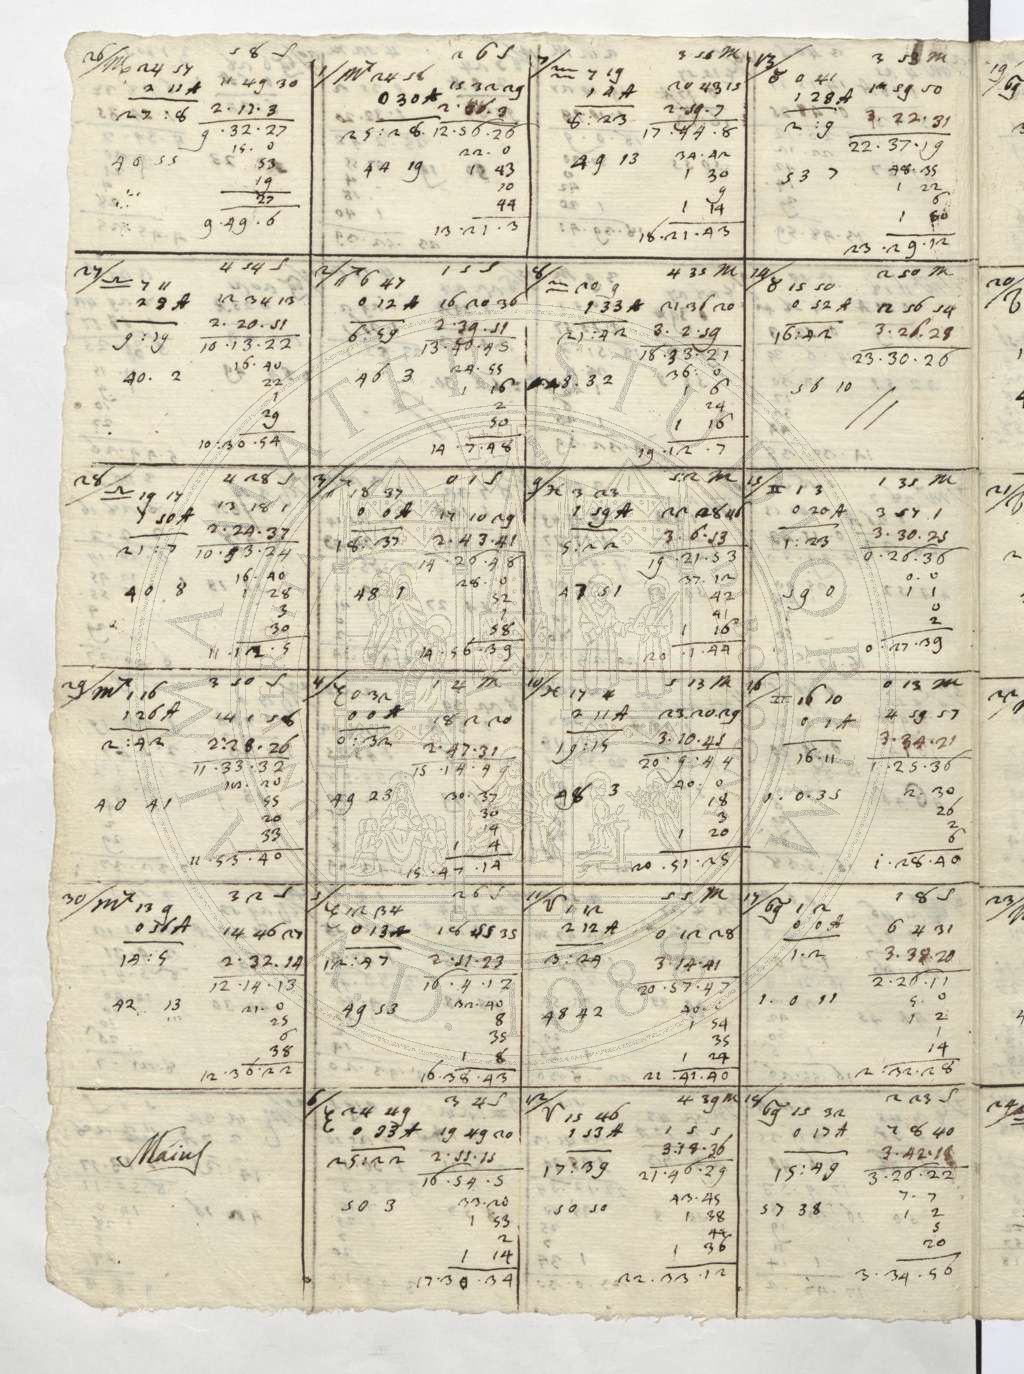 26/ ♍ 24 57 5 8 S
2 11 A 11 49 30
27:8 2.17.3
9.32.27
46 55 15.0
53
19
27
9.49.6
27/ ♎ 7 11 4 54 S
2 9 A 12 34 13
9:19 2.20.51
10.13.22
40.2 16.40
22
1
29
10:30.54
28/ ♎ 19 17 4 28 S
1 50 A 13 18 1
21:7 2.24.37
10.53.24
40 8 16.40
1 28
3
30
11.12.5
29/ 1 16 3 50 S
1 26 A 14 1 58
2:42 2:28.26
11.33.32
40 41
55
20
33
11.53.40
30/ 13 9 3 2 S
0 56 A 14 46 27
14:5 2.32.14
12.14.13
42 13 21.0
25
6
38
12.36.22
Maius
1/ 24 56 2 6 S
0 30 A 15 32 29
25:28 12.56.26
44 19 22.0
1 43
10
44
13.21.3
2/ 6 47 1 5 S
0 12 A 16 20 36
6:59 2.39.51
13.40.45
46 3 24.55
1 16
2
50
14.7.48
3/ 18 37 0 1 S
0 0 A 17 10 29
18:37 2.43.41
14.26.48
48 1 28.0
52
1
58
14.56.39
4/ 0 32 1 4 M
0 0 A 18 2 20
0:32 2.47.31
15.14.49
49 23 30.37
30
14
1 4
15.47.14
5/ 12 34 2 6 S
0 13 A 18 55 35
12:47 2.51.23
16.4.12
49 53 32.40
8
35
1 8
16.38.43
6/ 24 49 3 4 S
0 33 A 19 49 20
25:22 2.55.15
16.54.5
50 3 33.20
1 53
2
1 14
17.30.34
7/ ♒ 7 19 3 56 M
1 4 A 20 43 15
8:23 2.59.7
17.44.8
49 13 34.42
1 30
9
1 14
18.21.43
8/ ♒ 20 9 4 35 M
1 33 A 21 36 20
21:42 3.2.59
18.33.21
48.32 36:0
1 6
24
1 16
19.12.7
9/ ♓ 3 23 5 2 M
1 59 A 22 28 46
5:22 3.6.53
19.21.53
47 51 37.12
42
41
1 16
20.1.44
10/ ♓ 17 4 5 13 M
2 11 A 23 20 29
19:15 3.10.45
20:9:44
48 3 40:0
18
3
1 20
20.51.25
11/ ♈ 1 12 5 5 M
2 12 A 0 12 28
3:24 3.14.41
20.57.47
48 42 40.0
1 54
35
1 24
21.41.40
12/ ♈ 15 46 4 39 M
1 53 A 1 5 5
17:39 3.18.36
21.46.29
50 50 43.45
1 38
44
1 36
22.33.12
13/ ♉ 0 41 3 53 M
1 28 A 1 59 50
2:9 3.22.31
22.37.19
53 7 48.35
1 22
6
1 50
23.29.12
14/ ♉ 15 50 2 50 M
0 52 A 2 56 54
16:42 3.26.28
23.30.26
56 10 //
15/ ♊ 1 3 1 35 M
0 20 A 3 57 1
1:23 3.30.25
0.26.36
59 0 0.0
1 1
0
2
0.27.39
16/ ♊ 16 10 0 13 M
0 1 A 4 59 57
16.11 3.34.21
1.25.36
1.0.35 2.30
26
2
6
1.28.40
17/ ♋ 1 2 1 8 S
0 0 A 6 4 31
1.2 3.38.20
2.26.11
1.0 11 5.0
1 2
1
14
2.32.28
18/ ♋ 15 32 2 23 S
0 17 A 7 8 40
15:49 3.42.18
3.26.22
57 38 7.7
1 2
5
20
3.34.56
19/
20/
21/
22/
23/
24/